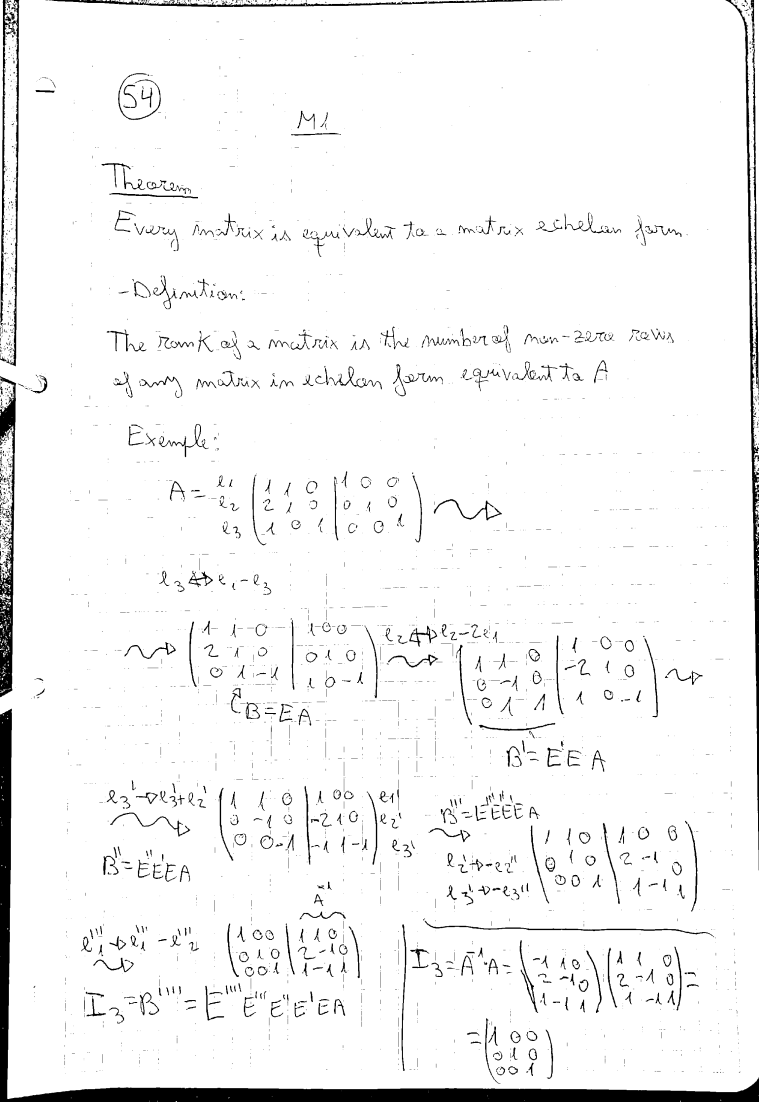 54
M1
Theorem
Every matrix is equivalent to a matrix echelon form.
- Definition:
The rank of a matrix is the number of non-zero rows
of any matrix in echelon form equivalent to A
Exemple:
A = e1 e2 e3 ( 1 1 0 | 1 0 0
2 1 0 | 0 1 0
1 0 1 | 0 0 1 )
e3 ↔ e1 - e3
( 1 1 0 | 1 0 0
2 1 0 | 0 1 0
0 1 -1 | 1 0 -1 )
B = E A
e2 ↔ e2 - 2e1
( 1 1 0 | 1 0 0
0 -1 0 | -2 1 0
0 1 -1 | 1 0 -1 )
B' = E'E A
e3' → e3' + e2'
( 1 1 0 | 1 0 0
0 -1 0 | -2 1 0
0 0 -1 | -1 1 -1 ) e1' e2' e3'
B'' = E''E'EA
B''' = E'''E''E'EA
e2' → -e2''
e3' → -e3''
( 1 1 0 | 1 0 0
0 1 0 | 2 -1 0
0 0 1 | 1 -1 1 )
e1''' → e1''' - e2'''
A^-1
( 1 0 0 | 1 1 0
0 1 0 | 2 -1 0
0 0 1 | 1 -1 1 )
I3 = B'''' = E'''' E''' E'' E' E A
I3 = A^-1 · A = ( -1 1 0
2 -1 0
1 -1 1 ) ( 1 1 0
2 -1 0
1 -1 1 ) =
= ( 1 0 0
0 1 0
0 0 1 )